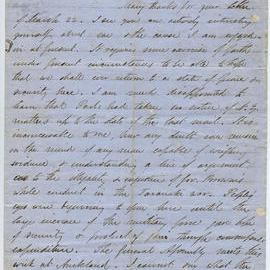 Many thanks for your letter
of March 22. I see you are actively interesting
yourself about our other cause I am engaged
in at present. It requires some exercise of faith
under present circumstances to be able to hope
that we shall ever return to a state of peace or
security here. I am much disappointed to
learn that Parl had taken no notice of N.Z.
matters up to the date of the last mail. It is
inconceivable to me how any doubt can remain
in the mind of any man capable of weighing
evidence & understanding a line of argument
as to the illegality & injustice of Gov Browne's
whole conduct in the Taranaki war. People's
eyes are beginning to open here until the
large increase of the military force gave hope
of security & profit of large troops commissariat
expenditure. The General Assembly meets this
week at Auckland. I cannot say what the